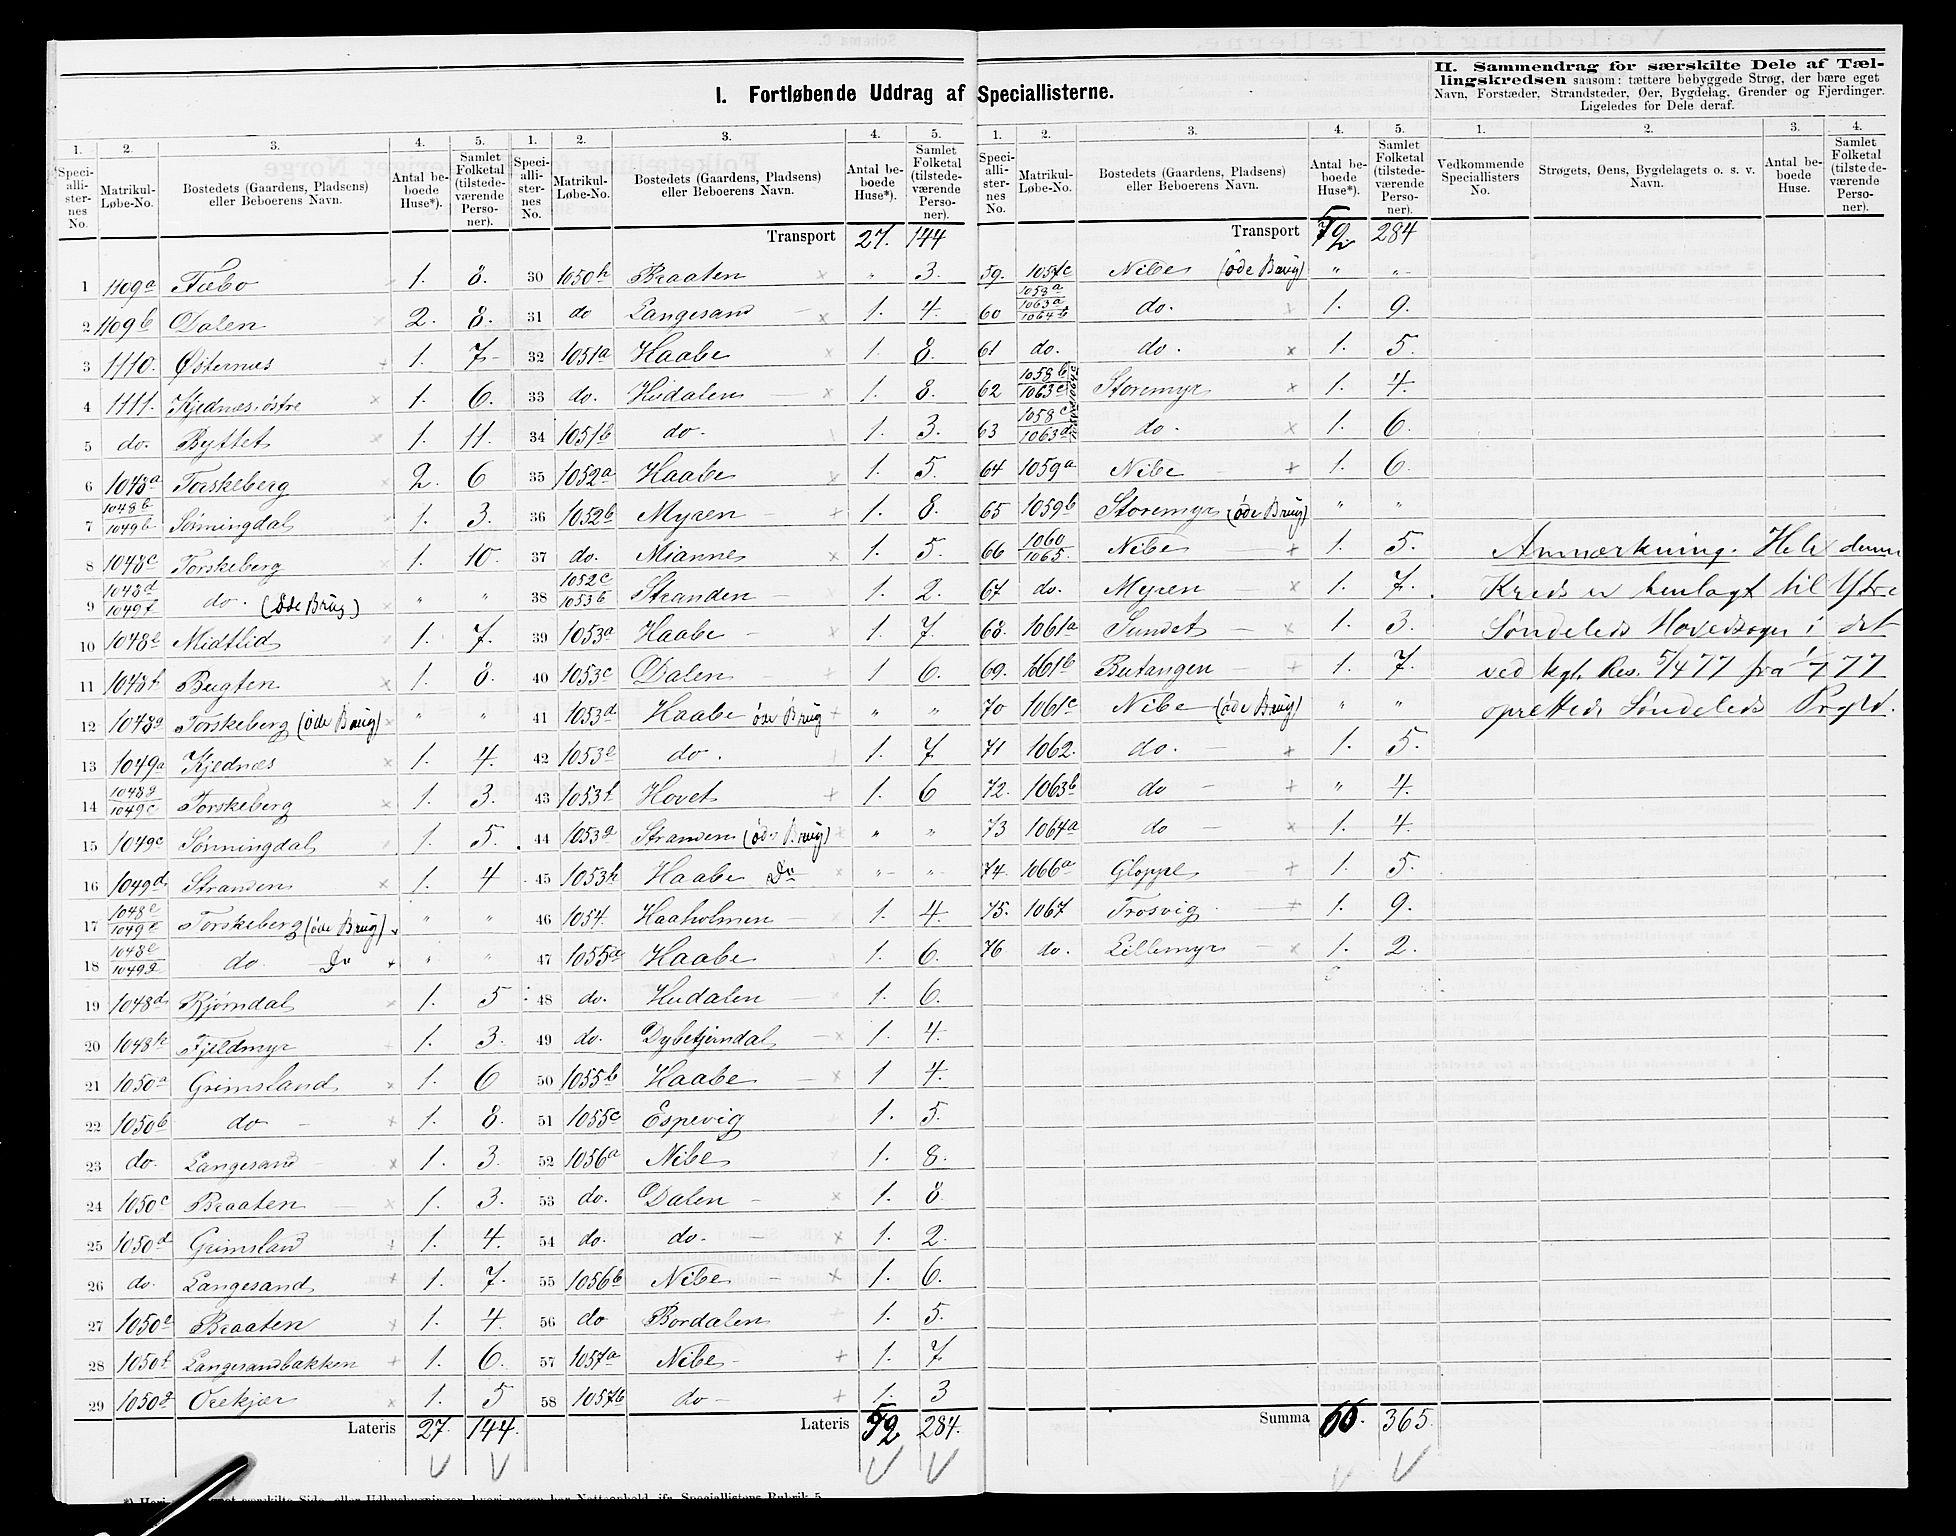 I. Fortløbende Uddrag af Speciallisterne.
II. Sammendrag for særskilte Dele af Tæl-
lingskredsen saasom: tættere bebyggede Strøg, der bære eget
Navn, Forstæder, Strandsteder, Øer, Bygdelag, Grender og Fjerdinger.
Ligeledes for Dele deraf.
1. 2. 3. 4. 5.
Speci-alli-ster-nes No. Matrikul-Løbe-No. Bostedets (Gaardens, Pladsens) eller Beboerens Navn. Antal be-boede Huse*). Samlet Folketal (tilstede-værende Perso-ner).
1 1109a Fæbo 1. 8.
2 1109b Dalen 2. 8.
3 1110. Østernes 1. 7.
4 1111. Kjednæs, østre 1. 6.
5 do. Byttet 1. 11.
6 1048a Torskeberg 2. 6
7 1048b 1049b Sønningdal 1. 3.
8 1048c Torskeberg 1. 10.
9 1048d 1049f do. (øde Brug) " "
10 1048e Midtlid 1. 7.
11 1048f Bugten 1. 8.
12 1048g Torskeberg (øde Brug) " "
13 1049a Kjednæs 1. 4.
14 1048g 1049c Torskeberg 1. 3.
15 1049c Sønningdal 1. 5.
16 1049d Stranden 1. 4
17 1048e 1049e Torskeberg (øde Brug) " "
18 1048e 1049g do. Do " "
19 1048d Bjørndal 1. 5
20 1048h Fjeldmyr 1. 3.
21 1050a Grimsland 1. 6
22 1050b do 1. 8.
23 do. Langesand 1. 3.
24 1050c Braaten 1. 3.
25 1050d Grimsland 1. 4.
26 do. Langesand 1. 7.
27 1050e Braaten 1. 4.
28 1050f Langesandbakken 1. 6.
29 1050g Orekjær 1. 5
Lateris 27. 144.
1. 2. 3. 4. 5.
Speci-alli-ster-nes No. Matrikul-Løbe-No. Bostedets (Gaardens, Pladsens) eller Beboerens Navn. Antal be-boede Huse*). Samlet Folketal (tilstede-værende Perso-ner).
Transport 27. 144
30 1050h Braaten " 3.
31 do Langesand 1. 4.
32 1051a Haabe 1. 8.
33 do. Hudalen 1. 8.
34 1051b do. 1. 3.
35 1052a Haabe 1. 5.
36 1052b Myren 1. 8.
37 do. Miannes 1. 5.
38 1052c 1053b Stranden 1. 2.
39 1053a Haabe 1. 7.
40 1053c Dalen 1 6.
41 1053d Haabe øde Brug " "
42 1053e do. 1. 7
43 1053f Hovet 1. 6
44 1053g Stranden (øde Brug) " "
45 1053h Haabe Do " "
46 1054. Haaholmen 1. 4.
47 1055a Haabe 1. 6.
48 do. Hudalen 1. 6.
49 do. Dybetjerndal 1. 4.
50 1055b Haabe 1 4.
51 1055c Espevig 1. 5.
52 1056a Nibe 1. 8.
53 do. Dalen 1. 8
54 do. do. 1. 2.
55 1056b Nibe 1. 6.
56 do Bordalen 1. 5.
57 1057a Nibe 1. 7.
58 1057b do 1. 3
Lateris 52 284.
1. 2. 3. 4. 5.
Speci-alli-ster-nes No. Matrikul-Løbe-No. Bostedets (Gaardens, Pladsens) eller Beboerens Navn. Antal be-boede Huse*). Samlet Folketal (tilstede-værende Perso-ner).
Transport 52 284
59. 1057c Nibe (øde Brug) " "
60 1058a 1063a 1064b do. 1. 9.
61 do. do. 1. 5.
62 1058b 1063c Storemyr 1. 4.
63 1058c 1063d do. 1. 6.
64 1059a Nibe 1. 6.
65 1059b Storemyr (øde Brug) " "
66 1060 1065. Nibe 1. 5.
67 do. Myren 1. 7.
68. 1061a Sundet 1. 3.
69. 1061b Butangen 1. 7.
70 1061c Nibe (øde Brug) " "
71 1062. do. 1. 5.
72. 1063b do " 4.
73 1064a do 1. 4.
74. 1066a Gloppe 1. 5.
75. 1067 Trosvig 1. 9.
76 do. Lillemyr 1. 2.
Summa 66. 365.
1. 2. 3. 4.
Vedkommende Speciallisters No. Strøgets, Øens, Bygdelagets o. s. v. Navn. Antal be-boede Huse. Samlet Folketal (tilstede-værende Perso-ner).
Anmærkning. Hele denne
Kreds er henlagt til Ytre
Søndeleds Hovedsogn i det
ved kgl. Res. 5/4 77 fra 1/7 77
oprettede Søndeleds Prgld.